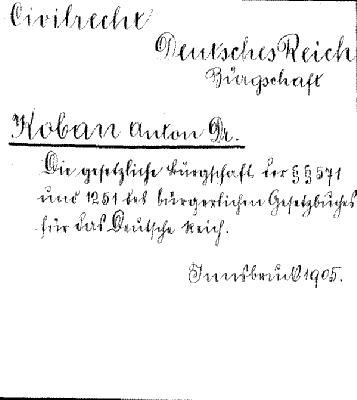 Civilrecht
Deutsches Reich
Bürgschaft
Koban Anton Dr.
Die gesetzliche Bürgschaft der §§ 571
und 1251 des bürgerlichen Gesetzbuches
für das Deutsche Reich.
Innsbruck 1905.